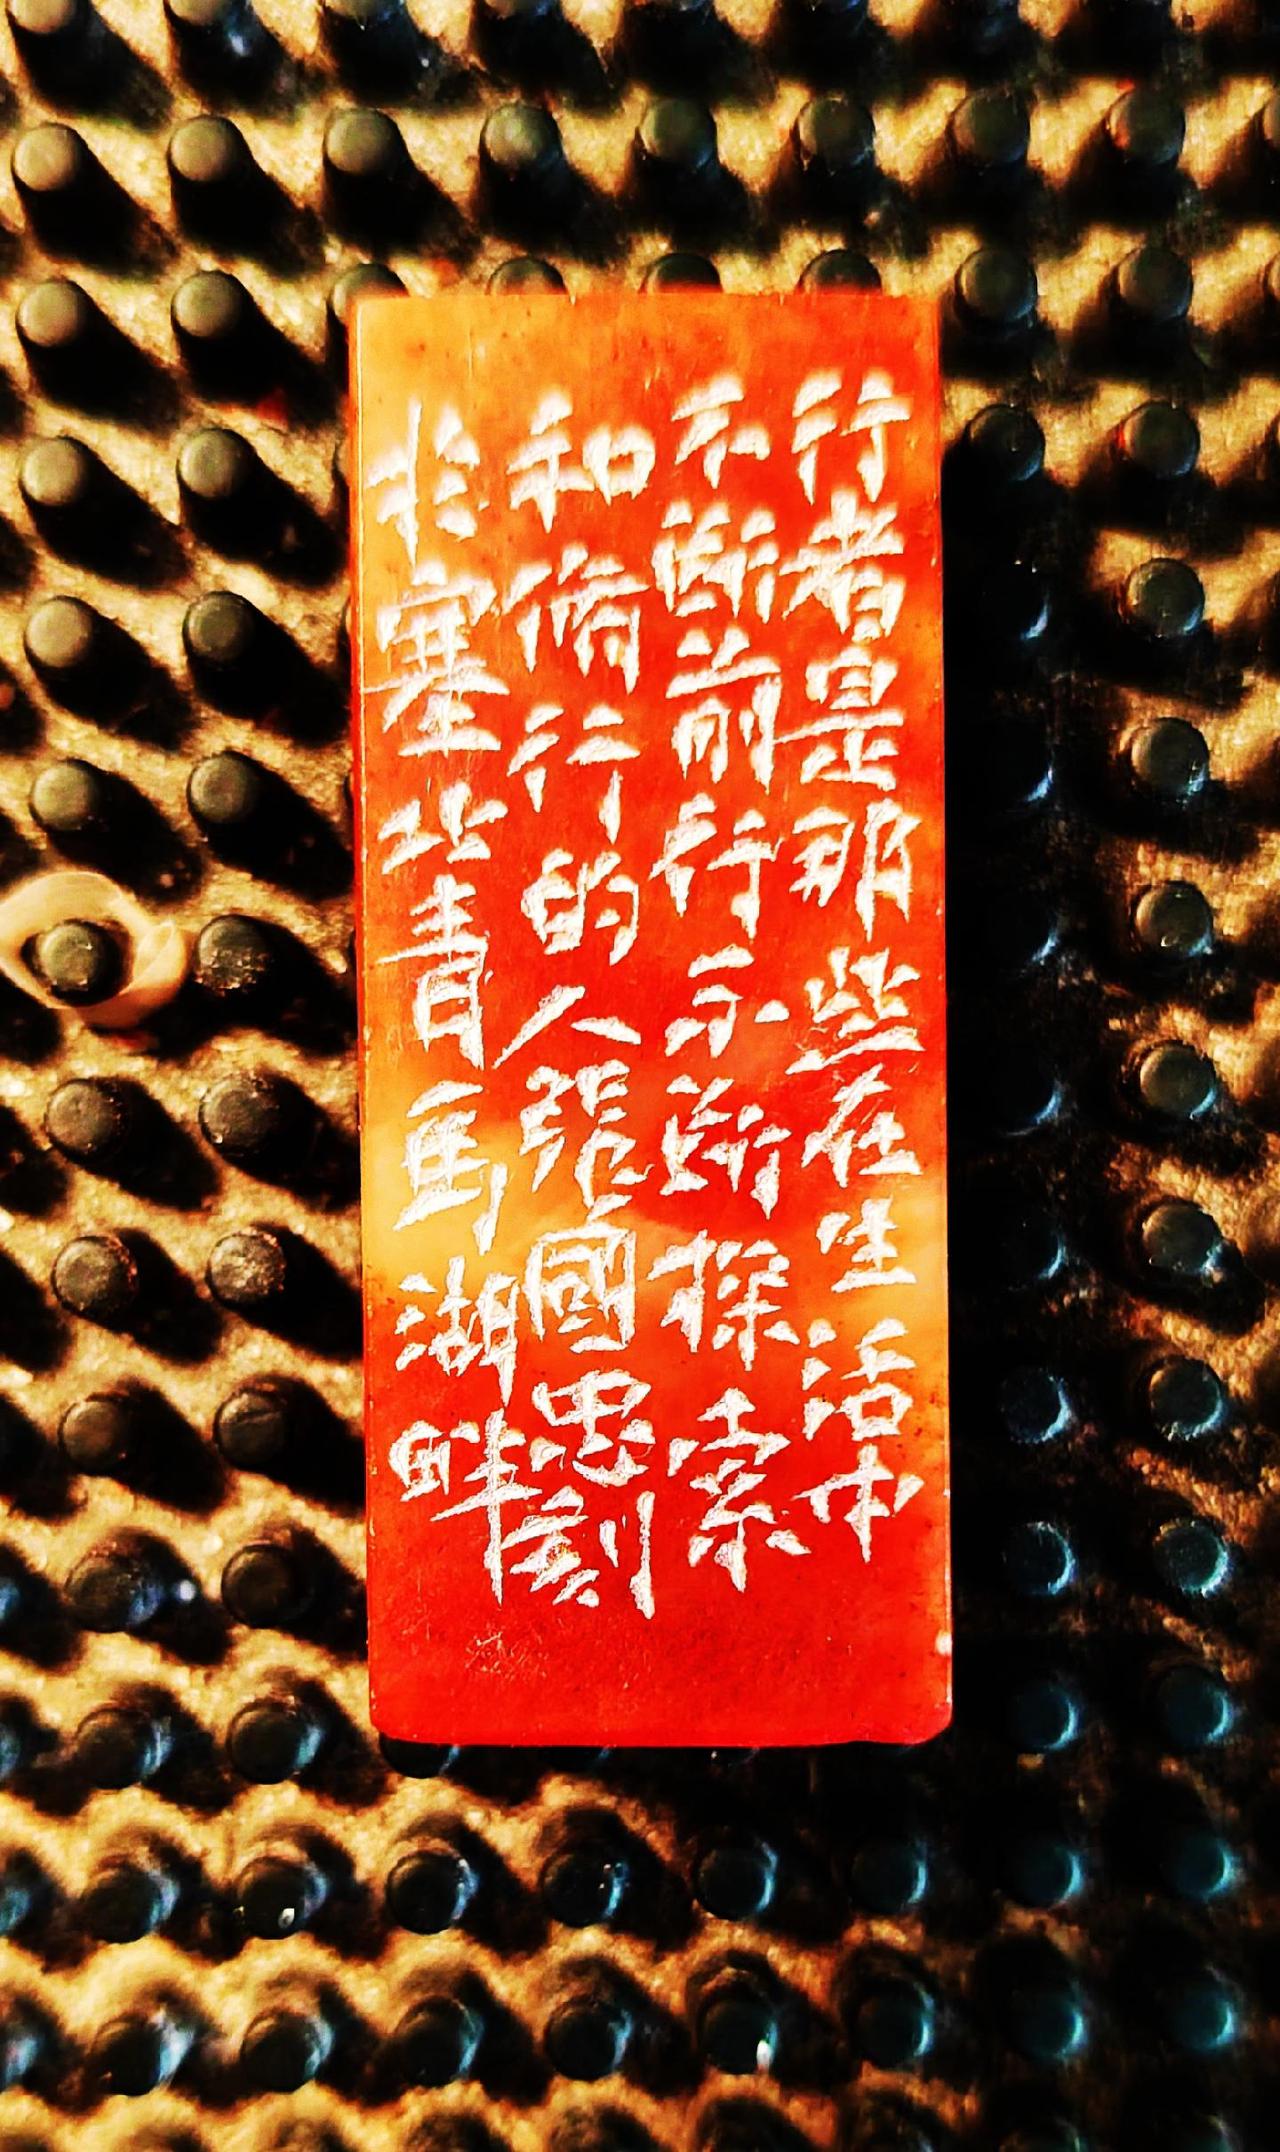 行者是那些在生活中
不断前行不断探索
和脩行的人張國忠刻
於塞北青馬湖畔